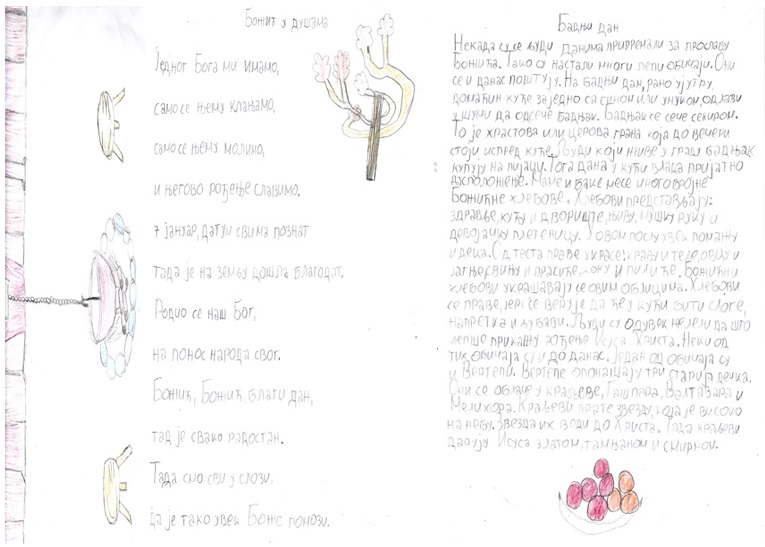 Божић у душама
Једног Бога ми имамо,
само се њему клањамо,
само се њему молимо,
и његово рођење славимо.
7 јануар, датум свима познат
тада је на земљу дошла благодат.
Родио се наш Бог,
на понос народа свог.
Божић, Божић благи дан,
тад је свако радостан.
Тада смо сви у слози,
да је тако увек Боже помози.
Бадњи дан
Некада су се људи данима припремали за прославу
Божића. Тако су настали многи лепи обичаји. Они
се и данас поштују. На бадњи дан, рано ујутру,
домаћин куће заједно са сином или унуком, одлази
у шуми да одсече бадњак. Бадњак се сече секиром.
То је храстова или церова грана која до вечери
стоји испред куће. Људи који живе у граду бадњак
купују на пијаци. Тога дана у кући влада пријатно
расположење. Маме и баке месе многобројне
божићне хлебове. Хлебови представљају:
здравље, кућу и двориште, њиву, мушку руку и
девојачку плетеницу. У овом послу увек помажу
и деца. Од теста праве украсе: краву и теле, овцу и
јагње, свињу и прасиће, коку и пилиће. Божићни
хлебови украшавају се овим облицима. Хлебови
се праве, јер се верује да ће у кући бити слоге,
напретка и љубави. Људи су одувек желели да што
лепше прикажу рођење Исуса Христа. Неки од
тих обичаја су и до данас. Један од обичаја су
и Вертепи. Вертепе опонашају три старија дечка.
Они се облаче у краљеве, Гашпара, Валтазара и
Мелихора. Краљеви прате звезду, која је високо
на небу. Звезда их води до Христа. Тада краљеви
дарују Исуса златом, тамњаном и смирном.